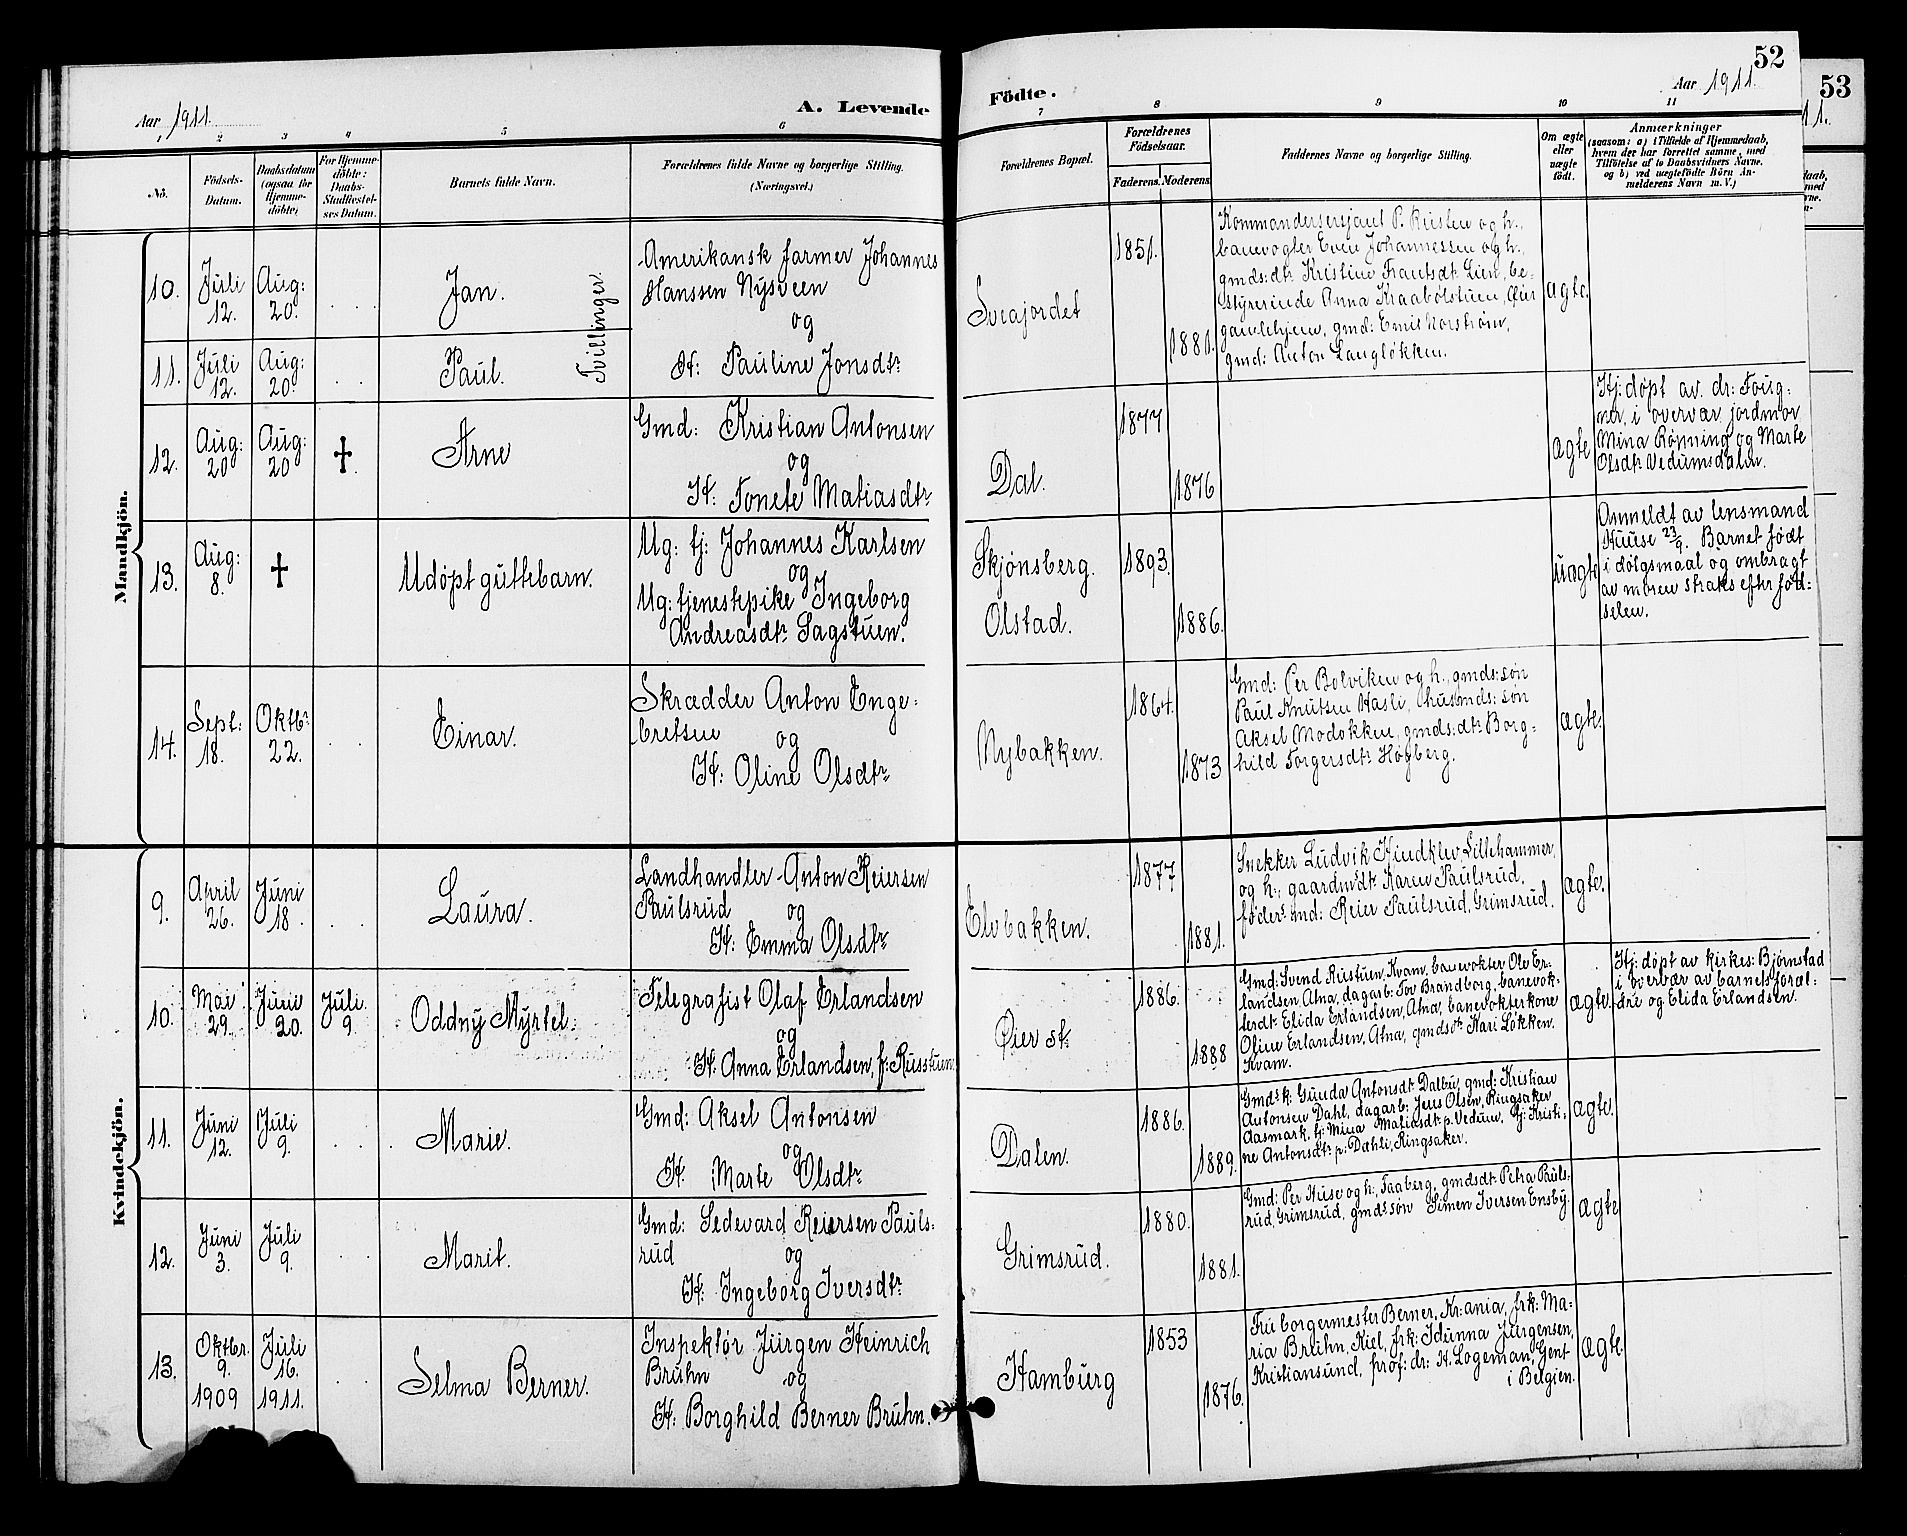 52
53
Aar 1911.
A. Levende
Födte.
Aar 1911.
11.
1 2 3 4 5 6 7 8 9 10 11
No.
Födsels-
Datum.
Daabsdatum
(ogsaa for
Hjemme-
döbte)
For Hjemme-
döbte:
Daabs-
Stadfæstel-
ses Datum.
Barnets fulde Navn.
Forældrenes fulde Navne og borgerlige Stilling.
(Næringsvei.)
Forældrenes Bopæl.
Forældrenes
Födselsaar.
Faderens. Moderens.
Faddernes Navne og borgerlige Stilling.
Om ægte
eller
uægte
födt.
Anmærkninger
(saasom: a) i Tilfælde af Hjemmedaab,
hvem der har forrettet samme, med
Tilföielse af to Daabsvidners Navne.
og b) ved uægtefödte Börn An-
melderens Navn m. V.)
Mandkjön.
10.
Juli
12.
Aug:
20.
Jan.
Tvillinger.
Amerikansk farmer Johannes
Hanssen Nysveen
og
Sveajordet
1851.
1881.
Kommandersersjant P. Rusten og h.,
banevogter Even Johannessen og h.,
gmds:dtr Kristine Frantsdtr Lien, be-
styrerinde Anna Kraabølstuen, Øier
gamlehjem, gmd: Emil Norstrøm,
gmd: Anton Langløkken.
ægte.
11.
Juli
12.
Aug:
20.
Paul.
H: Pauline Jonsdtr
12.
Aug:
20
Aug:
20
†
Arne
Gmd: Kristian Antonsen
og
H: Tonete Matiasdtr
Dal.
1877
1876
ægte
Hj: døpt av dr: Foug-
ner, i overvær jordmor
Mina Rønning og Marte
Olsdtr Vedumsdalen.
13.
Aug:
8.
†
Udøpt guttebarn.
Ug: tj: Johannes Karlsen
og
Ug: tjenestepike Ingeborg
Andreasdtr Sagstuen.
Skjønsberg.
Olstad.
1893.
1886.
uægte
Anmeldt av lensmand
Huuse 23/9. Barnet født
i dølgsmaal og ombragt
av moren straks efter fød-
selen.
14.
Sept:
18.
Oktbr
22.
Einar.
Skrædder Anton Enge-
bretsen
og
H: Oline Olsdtr
Nybakken.
1864.
1873
Gmd: Per Bolviken og h., gmds: søn
Paul Knutsen Hasli, husmds: søn
Aksel Modokken, gmds: dtr Borg-
hild Torgersdtr Høgberg.
ægte.
Kvindekjön.
9.
April
26.
Juni
18.
Laura.
Landhandler Anton Reiersen
Paulsrud
og
H: Emma Olsdtr
Elvbakken.
1877
1881.
Snekker Ludvik Hindklev Lillehammer,
og h., gaardmdtr Karen Paulsrud,
føders md: Reier Paulsrud, Grimsrud.
ægte.
10.
Mai
29.
Juni
20.
Juli
9.
Oddny Myrtel.
Telegrafist Olaf Erlandsen
og
H. Anna Erlandsen, f: Russtuen
Øier st:
1886.
1888
Gmd: Svend Rustuen, Kvam, banevokter Ole Er-
landsen, Atna, dagarb: Tov Brandborg, banevok-
terdtr Elida Erlandsen, Atna, banevokterkone
Oline Erlandsen, Atna, gmdsdtr Kari Løkken.
Kvam.
ægte.
Hj: døpt av kirkes: Bjørnstad
i overvær av barnets foræl-
dre og Elida Erlandsen.
11.
Juni
12.
Juli
9.
Marie.
Gmd: Aksel Antonsen
og
H. Marte Olsdtr
Dalen.
1886.
1889.
Gmds k: Gunda Antonsdtr Dalbu, gmd: Kristian
Antonsen Dahl, dagarb: Jens Olsen, Ringsaker
Aasmark, tj: Mina Matiasdtr p. Vedum, tj: Kristi-
ne Antonsdtr p. Dæhli, Ringsaker.
ægte.
12.
Juni
3.
Juli
9.
Marit.
Gmd: Sedevard Reiersen Pauls-
rud
og
H: Ingeborg Iversdtr
Grimsrud.
1880.
1881.
Gmd: Per Huse og h., Faaberg, gmdsdtr Petra Pauls-
rud, Grimsrud, gmds søn Simen Iversen Ensby.
ægte
13.
Oktbr.
9.
1909
Juli
16.
1911.
Selma Berner.
Inspektør Jürgen Heinrich
Bruhn
og
H: Borghild Berner Bruhn.
Hamburg
1853
1876.
Fru borgermester Berner, Kr:ania, frk: Ma-
ria Bruhn, Kiel, frk: Idunna Jürgensen,
Kristiansund, prof: dr: H. Logeman, Gent
i Belgien.
ægte.